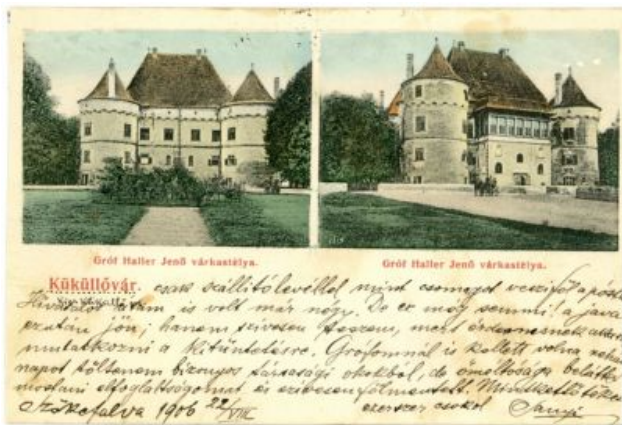 Gróf Haller Jenő várkastélya.
Gróf Haller Jenő várkastélya.
Küküllővár.
csak szállitólevéllel mint csomagot veszi föl a pósta
Hivatalos utam is volt már négy. De ez még semmi a java
ezután jön; hanem szivesen teszem, mert érdemesnek
mutatkozni a kitüntetésre. Grófomnál is kellett volna néhány
napot töltenem bizonyos társasági okokból, de őméltósága belátta
elfoglaltságomat és szivesen fölmentett.
Szőkefalva 1906 22/VIII ezerszer csókol Sanyi